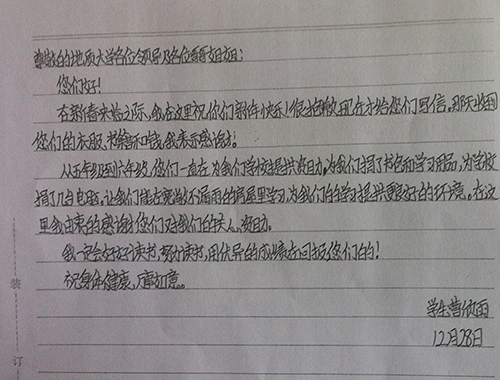 尊敬的地质大学各位领导及各位哥哥姐姐:
您们好!
在新春来临之际,我在这里祝你们新年快乐!很抱歉现在才给您们写信。那天收到
您们的衣服、书籍和钱,我表示感谢!
从五年级到六年级,您们一直在为我们学校提供资助。为我们捐了书包和学习用品,为学校
捐了几台电脑,让我们能在宽敞不漏雨的房屋里学习,为我们的学习提供更良好的环境。在这
里我由衷的感谢您们对我们的关心、资助。
我一定会好好读书,努力读书,用优异的成绩在回报您们的!
祝身体健康,万事如意。
学生曹欣雨
12月28日
装
订